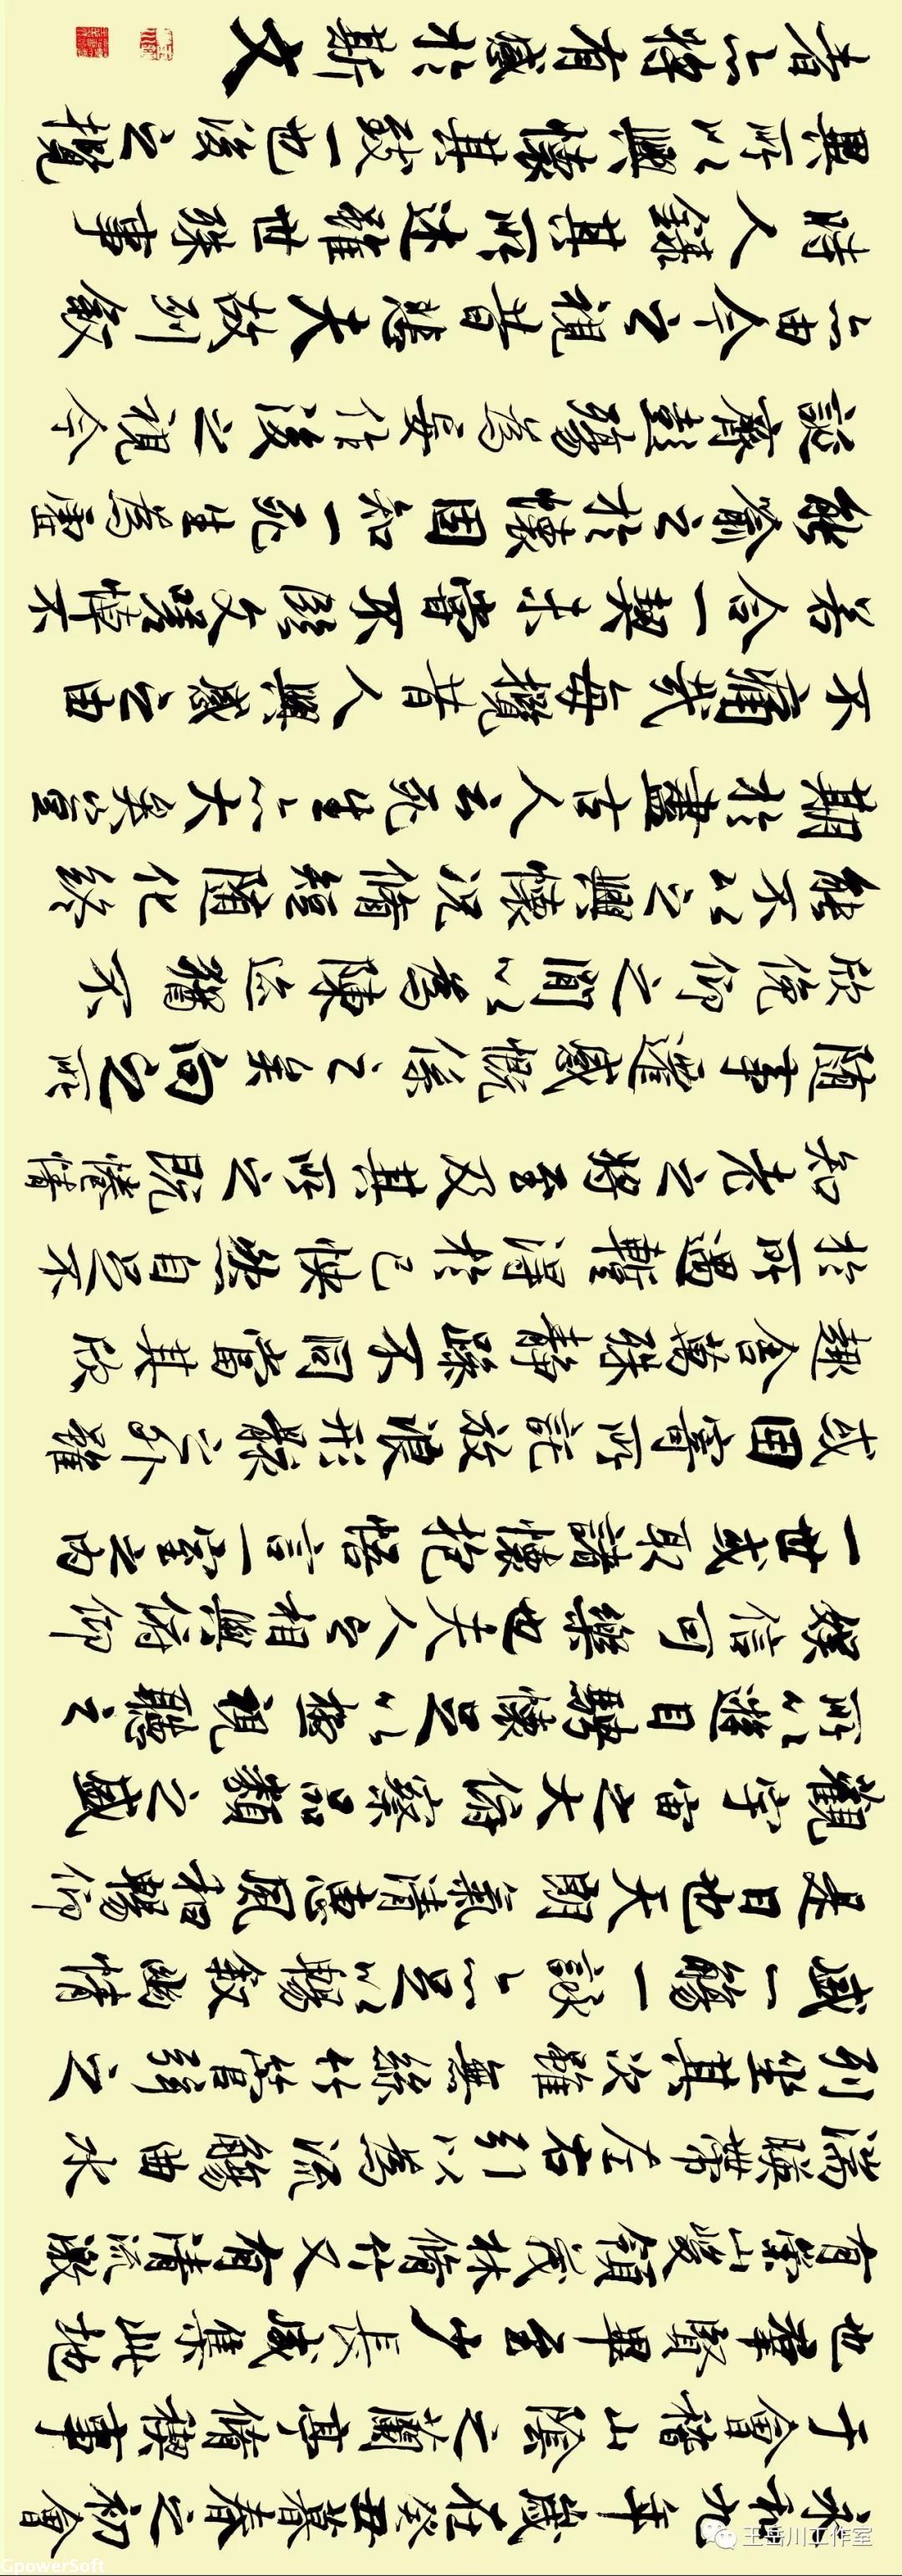 永和九年歲在癸丑暮春之初會
于會稽山陰之蘭亭脩禊事
也羣賢畢至少長咸集此地
有崇山峻領茂林脩竹又有清流激
湍暎帶左右引以為流觴曲水
列坐其次雖無絲竹管弦之
盛一觴一詠亦足以暢敘幽情
是日也天朗氣清惠風和暢仰
觀宇宙之大俯察品類之盛
所以遊目騁懷足以極視聽之
娛信可樂也夫人之相與俯仰
一世或取諸懷抱悟言一室之內
或因寄所託放浪形骸之外雖
趣舍萬殊靜躁不同當其欣
於所遇暫得於己快然自足不
知老之將至及其所之既惓情
隨事遷感慨係之矣向之所
欣俛仰之間以為陳迹猶不
能不以之興懷況脩短隨化終
期於盡古人云死生亦大矣豈
不痛哉每攬昔人興感之由
若合一契未嘗不臨文嗟悼不
能喻之於懷固知一死生為虛
誕齊彭殤為妄作後之視今
亦由今之視昔悲夫故列敘
時人錄其所述雖世殊事
異所以興懷其致一也後之攬
者亦將有感於斯文
王岳川工作室
GpowerSoft